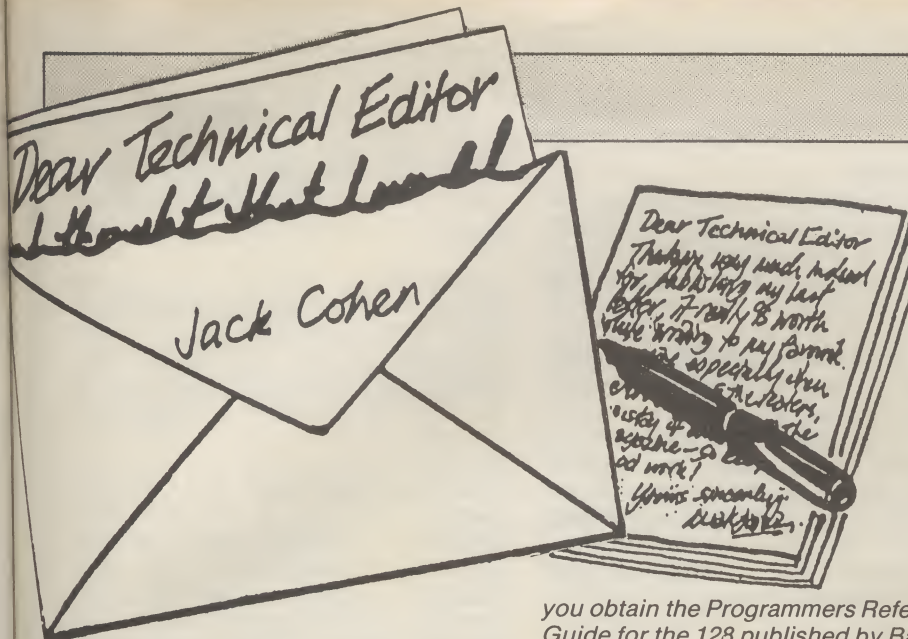 Dear Technical Editor
I thought that I would
Jack Cohen
Dear Technical Editor
Thank you very much indeed
for publishing my last
letter, it really is worth
while writing to my favourite
especially when
the
good work!
Yours sincerely
you obtain the Programmers Refe
Guide for the 128 published by B